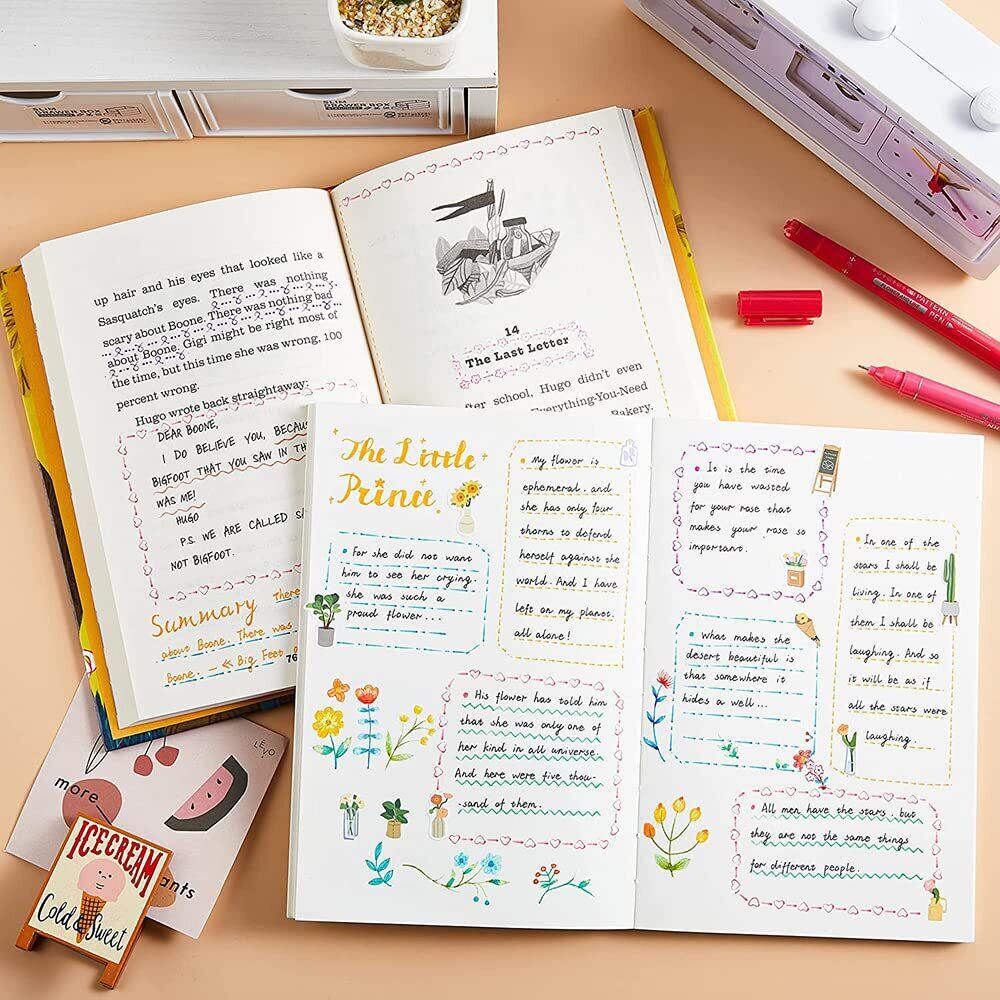 SLIM
DRAWER BOX
SLIM
DRAWER BOX
up hair and his eyes that looked like a
Sasquatch's eyes. There was nothing
scary about Boone. There was nothing bad
about Boone. Gigi might be right most of
the time, but this time she was wrong, 100
percent wrong.
Hugo wrote back straightaway:
DEAR BOONE,
I DO BELIEVE YOU, BECAUS
BIGFOOT THAT YOU SAW IN TH
WAS ME!
HUGO
P.S. WE ARE CALLED SA
NOT BIGFOOT.
Summary There
about Boone. There was
Big Feet
Boone.
76
14
The Last Letter
ter school, Hugo didn't even
Everything-You-Need
Bakery.
PATTERN
PEN
The Little
Prince.
For she did not want
him to see her crying.
she was such a
proud flower...
My flower is
ephemeral. and
she has only four
thorns to defend
herself against the
world. And I have
left on my planet.
all alone!
His flower has told him
that she was only one of
her kind in all universe.
And here were five thou-
-sand of them.
It is the time
you have wasted
for your rose that
makes your rose so
important.
What makes the
desert beautiful is
that somewhere it
hides a well...
In one of the
stars I shall be
living. In one of
them I shall be
laughing. And so
it will be as if
all the stars were
laughing.
All men have the stars. but
they are not the same things
for different people.
LEVO
more
ants
ICECREAM
Cold & Sweet